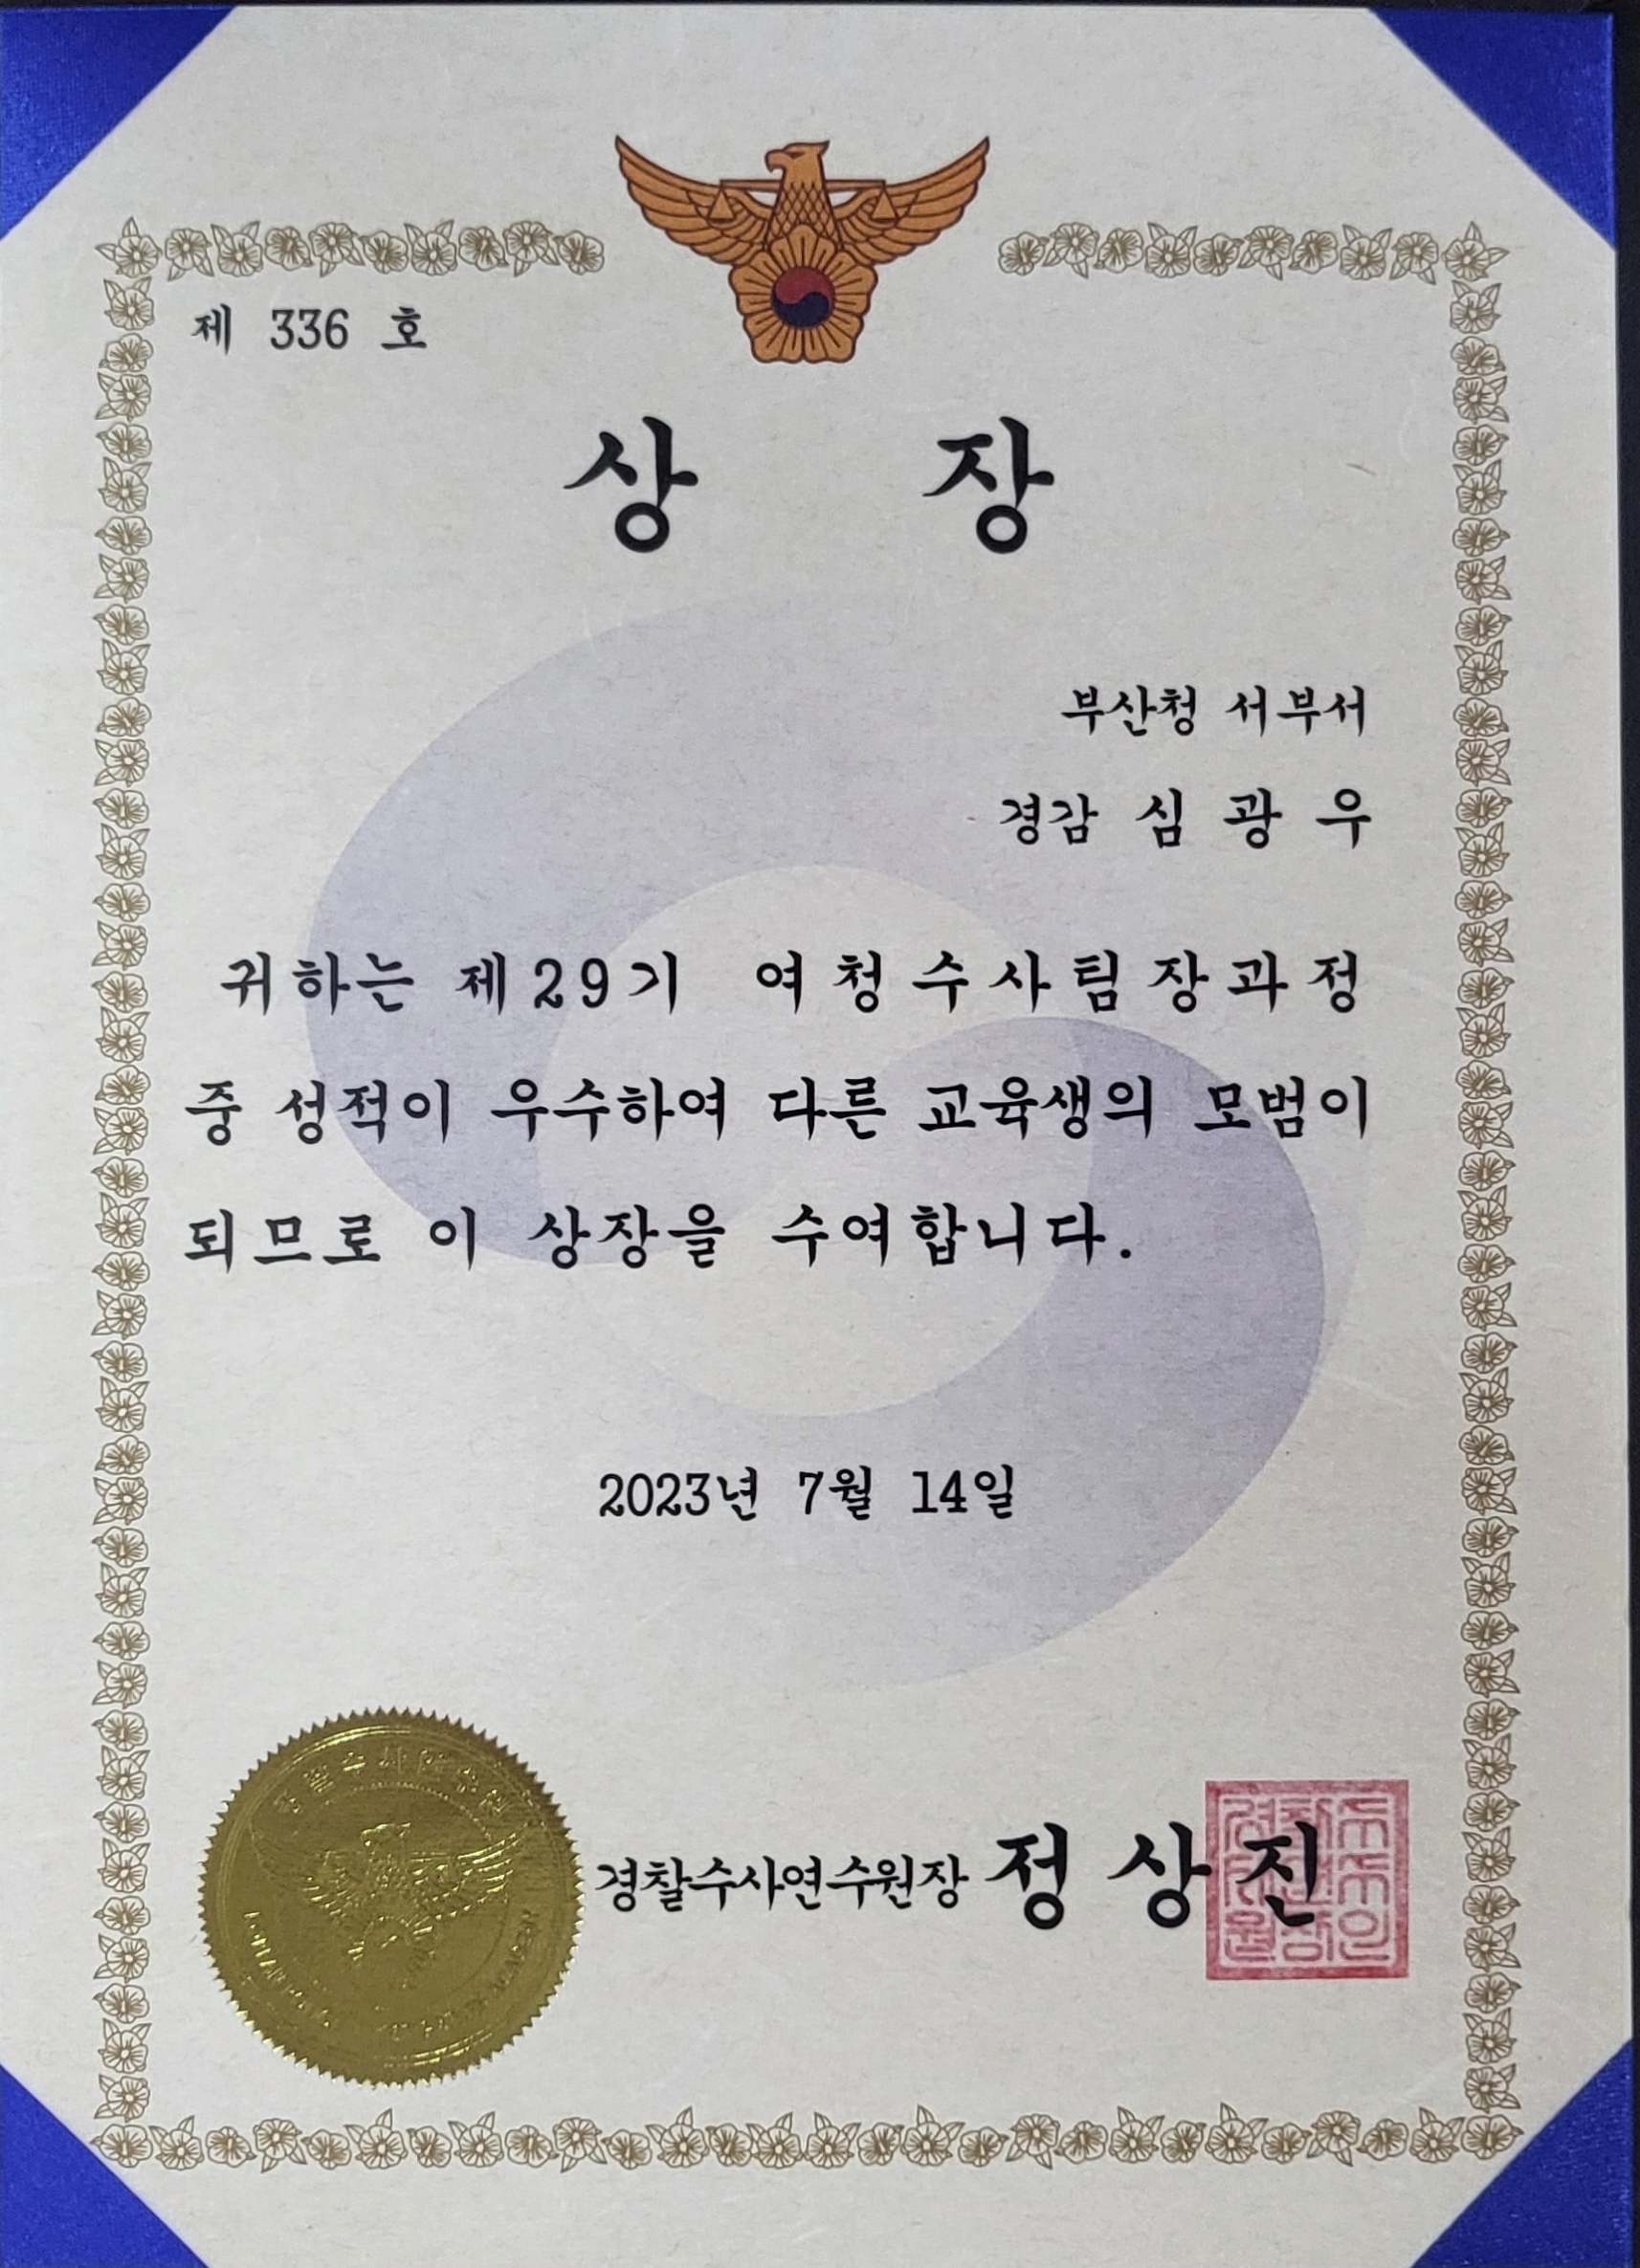 제 336 호
상 장
부산청 서부서
경감 심 광 우
귀하는 제29기 여청수사팀장과정
중 성적이 우수하여 다른 교육생의 모범이
되므로 이 상장을 수여합니다.
2023년 7월 14일
경찰수사연수원장 정 상 진